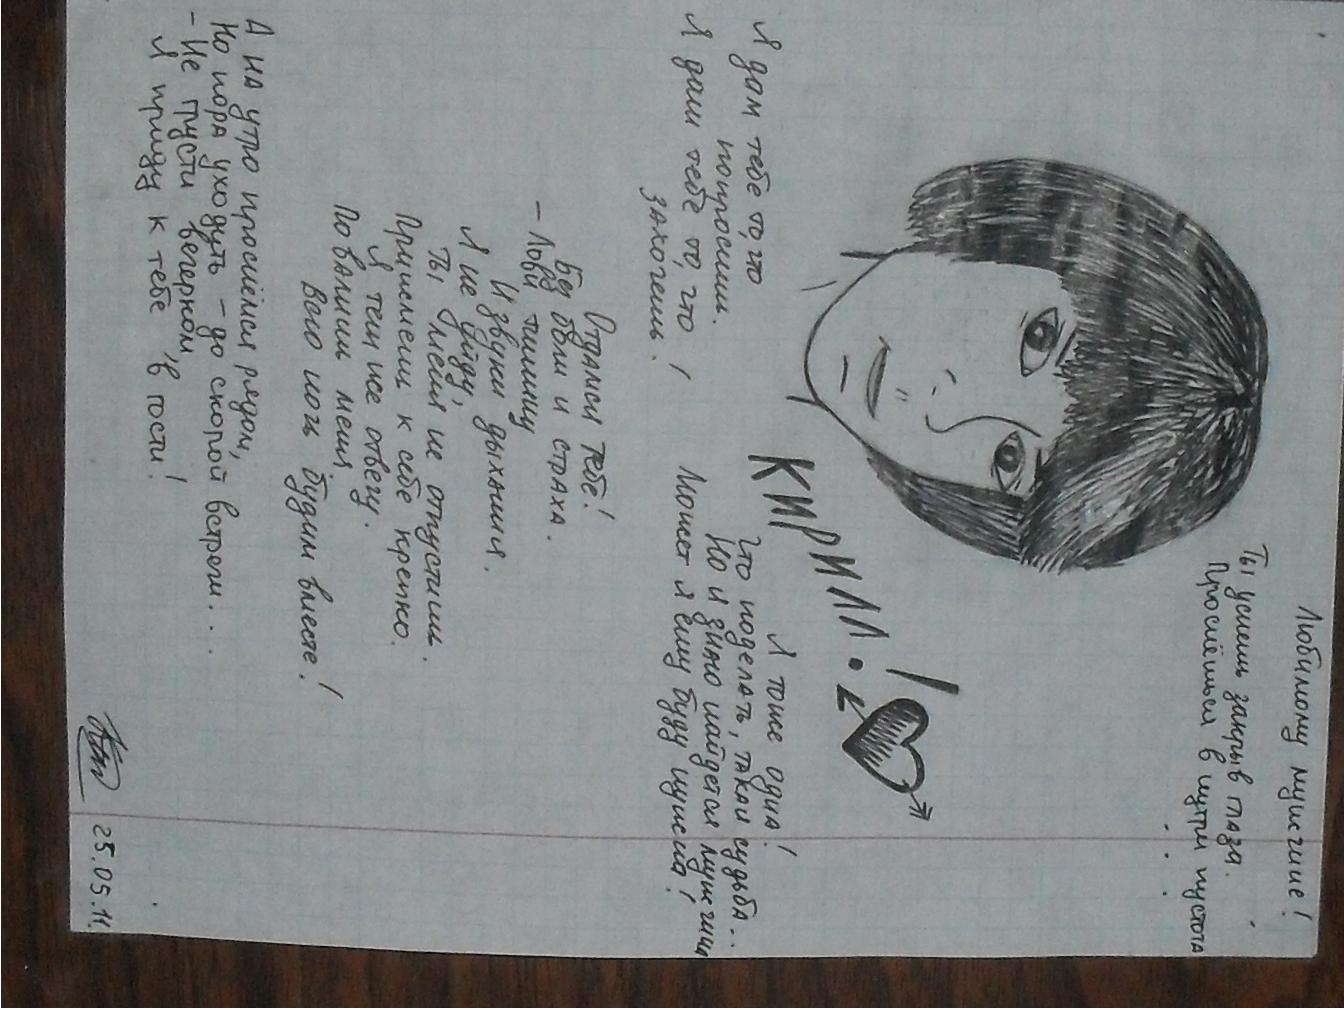 Любимому мужчине!
Ты уснёшь закрыв глаза.
Проснёшься в нутри пустота
КИРИЛЛ.!
Я дам тебе то, что
попросишь.
Я дам тебе то, что
захочешь.
Я тоже одна!
Что поделать, такая судьба...
Но я знаю найдется мужчина
Может я ему буду нужна!
Отдамся тебе!
Без боли и страха.
- Лови тишину
И звуки дыхания.
Я не уйду,
Ты меня не отпустишь.
Прижмешь к себе крепко.
Я тем же отвечу.
Повалишь меня,
Всю ночь будим вместе!
А на утро проснёмся рядом,
Но пора уходить - до скорой встречи...
- Не грусти вечерком,
Я приду к тебе в гости!
25.05.11.